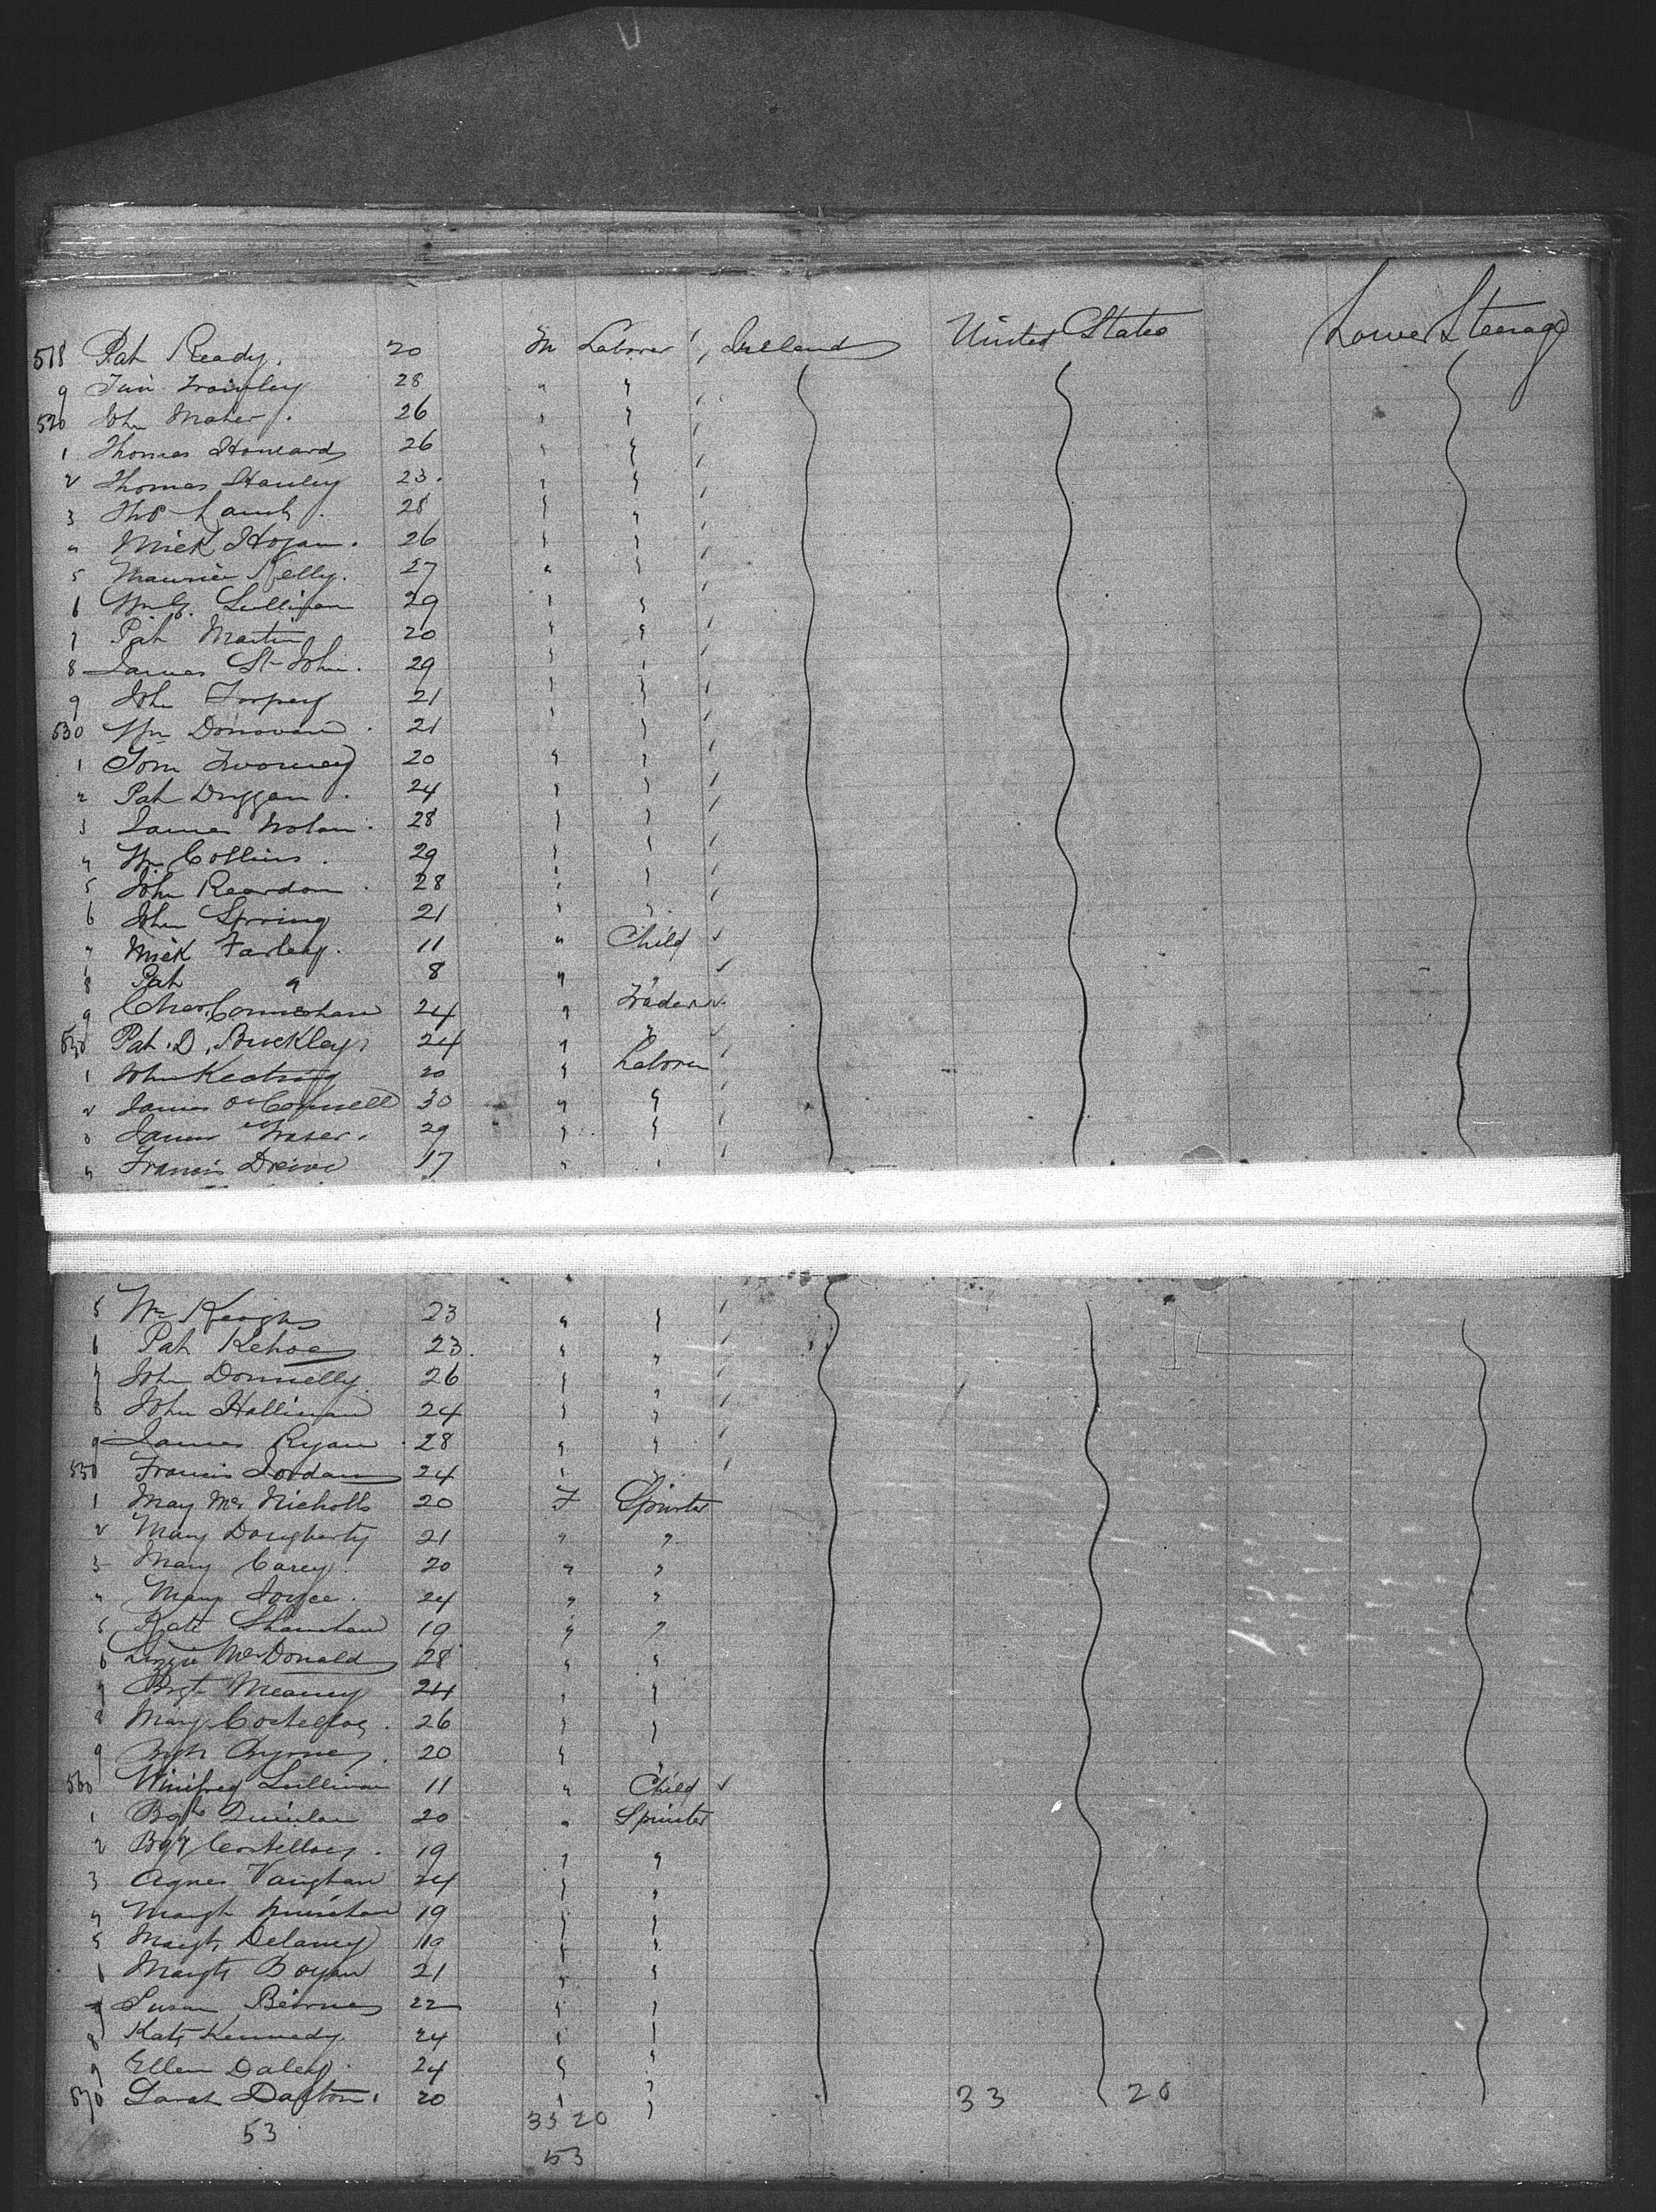 518 Pat Ready. 20 M Laborer Ireland United States Lower Steerage
9 Jim 28 " "
520 John Maher. 26 " "
1 Thomas Howard 26 " "
2 Thomas Hanley 23. " "
3 Thos Lamb. 28 " "
4 Mick Hogan. 26 " "
5 Maurice Kelly. 27 " "
6 Sullivan 29 " "
7 Pat Martin 20 " "
8 James St John. 29 " "
9 John Torpey 21 " "
530 Wm Donovan. 21 " "
1 Tom Twomey 20 " "
2 Pat Duggan. 24 " "
3 James Nolan. 28 " "
4 Wm Collins. 29 " "
5 John Reardon. 28 " "
6 John Spring 21 " "
7 Mick Farley. 11 " Child
8 Pat " 8 " "
9 Chas. 24 " Trader
540 Pat. D. Buckley. 24 " "
1 John Keating 20 " Laborer
2 James O'Connell 30 " "
3 James Fraser. 29 " "
4 Francis 17 " "
5 Wm Keogh 23 " "
6 Pat Kehoe 23. " "
7 John Donnelly. 26 " "
8 John Hallinan 24 " "
9 James Ryan. 28 " "
550 Francis Jordan 24 " "
1 May McNicholls 20 F Spinster
2 Mary Dougherty 21 " "
3 Mary Carey. 20 " "
4 Mary Joyce. 24 " "
5 Kate Shanahan 19 " "
6 Lizzie McDonald 28 " "
7 Brgt Meaney 24 " "
8 Mary Costelloe. 26 " "
9 Byrne. 20 " "
560 Winifred Sullivan 11 " Child
1 Bgt Quinlan 20 " Spinster
2 Bgt Costelloe. 19 " "
3 Agnes Vaughan 24 " "
4 Margt 19 " "
5 Margt Delaney 19 " "
6 Margt Boylan 21 " "
7 Susan Beirne 22 " "
8 Kate Kennedy. 24 " "
9 Ellen Daley. 24 " "
570 Sarah Dalton. 20 " " 33 20
53 33 20
53